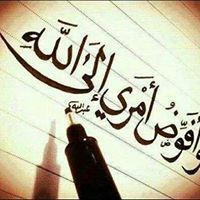 وأفوّضُ أمري إلىَ اللَّه